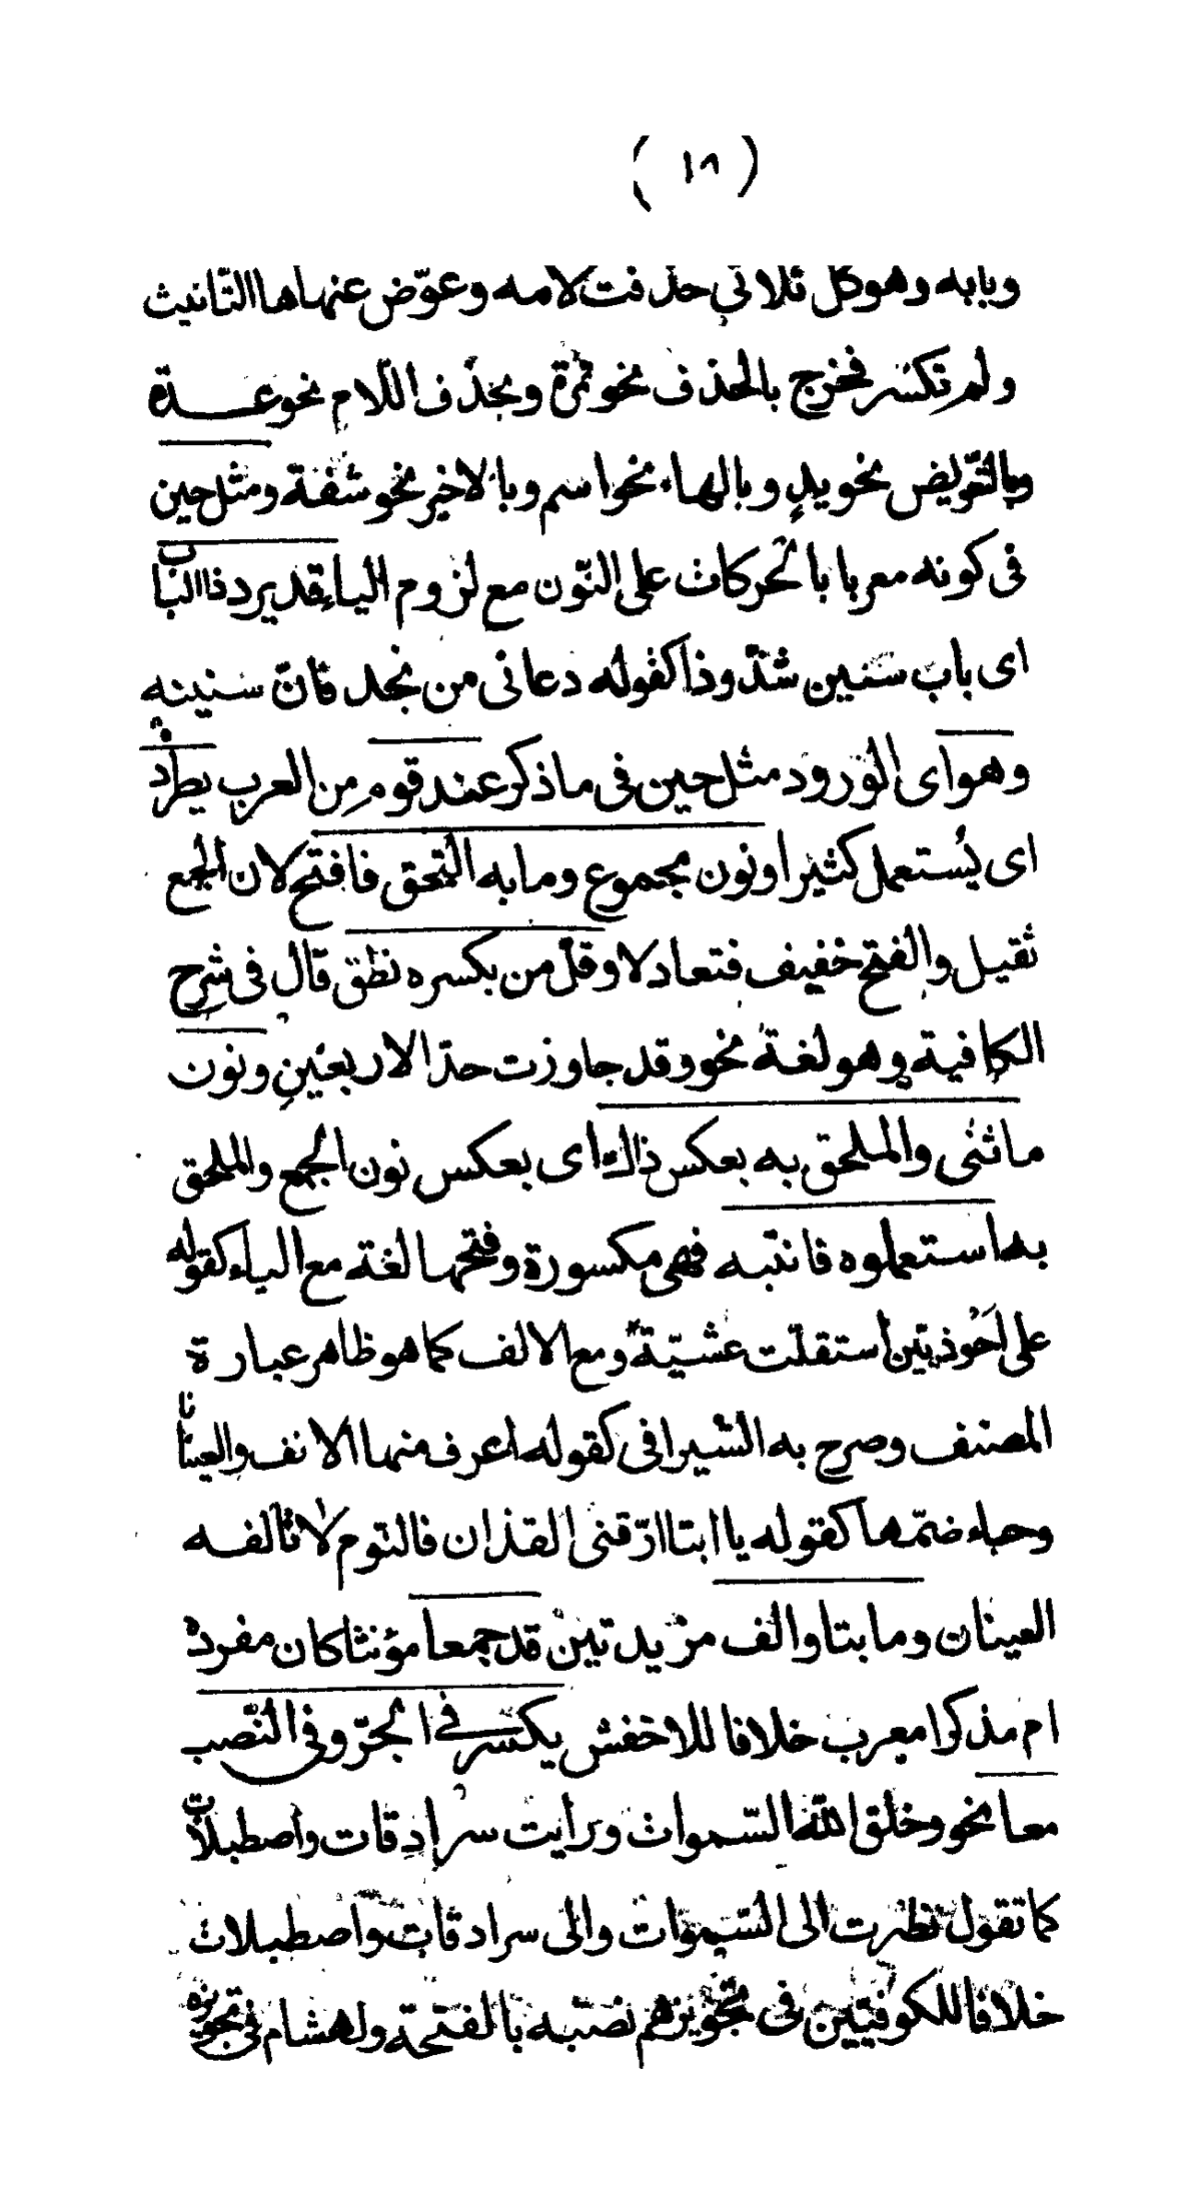 ( ١٨ )
وبابه وهو كل ثلاثي حذفت لامه وعوّض عنها ها التّانيث
ولم تكسر فخرج بالحذف نحو تمرة وبحذف اللّام نحو عدة
وبالتّعويض نحو يد وبالهاء نحو اسم وبالاخير نحو شفة ومثل حين
فى كونه معربا بالحركات على النّون مع لزوم الياء قد يرد ذا الباب
اى باب سنين شذوذا كقوله دعانى من نجد فانّ سنينه
وهو اى الورود مثل حين فى ما ذكر عند قوم من العرب يطرد
اى يستعمل كثيرا ونون مجموع وما به التحق فافتح لان الجمع
ثقيل والفتح خفيف فتعادلا وقلّ من بكسره نطق قال فى شرح
الكافية وهو لغة نحو وقد جاوزت حدّ الاربعين ونون
ما ثنى والملحق به بعكس ذاك اى بعكس نون الجمع والملحق
به استعملوه فانتبه فهى مكسورة وفتحها لغة مع الياء كقوله
على احوذيّين استقلّت عشيّة ومع الالف كما هو ظاهر عبارة
المصنف وصرح به الشيرافى كقوله اعرف منها الانف والعينانا
وجاء ضمّها كقوله يا ابتا ارّقنى القذان فالنّوم لا تالفه
العينان وما بتا والف مزيدتين قد جمعا مؤنثا كان مفرده
ام مذكرا معرب خلافا للاخفش يكسر فى الجرّ وفى النّصب
معا نحو وخلق اللّه السّموات ورأيت سرادقات واصطبلات
كما تقول نظرت الى السّموات والى سرادقات واصطبلات
خلافا للكوفيّين فى تجويزهم نصبه بالفتحة ولهشام فى تجويزه